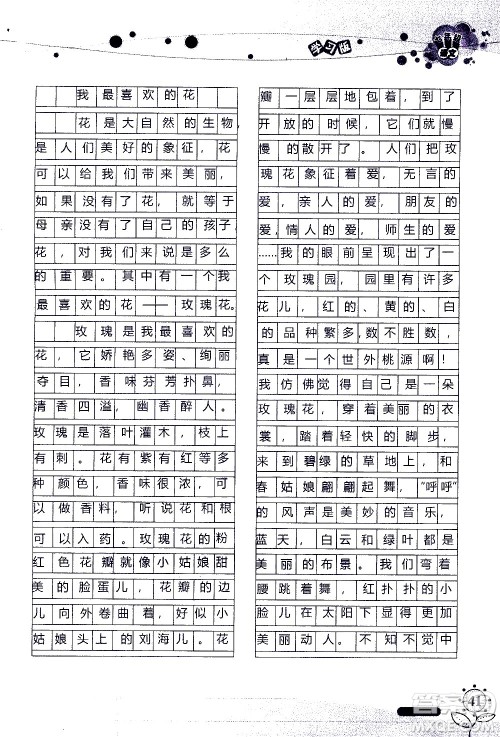 学习版
我最喜欢的花
花是大自然的生物,
是人们美好的象征,花
可以给我们带来美丽,
如果没有了花,就等于
母亲没有了自己的孩子,
花,对我们来说是多么
的重要。其中有一个我
最喜欢的花——玫瑰花。
玫瑰是我最喜欢的
花,它娇艳多姿、绚丽
夺目,香味芬芳扑鼻,
清香四溢,幽香醉人。
玫瑰是落叶灌木,枝上
有刺。花有紫有红等多
种颜色,香味很浓,可
以做香料,听说花可以
可以入药。玫瑰花的粉
红色花瓣就像小姑娘甜
美的脸蛋儿,花瓣的边
儿向外卷曲着,好似小
姑娘头上的刘海儿。花
瓣一层层地包着,到了
开放的时候,它们就慢
慢的散开了。人们把玫
瑰花象征着爱,美好的
爱,亲人的爱,朋友的
爱,情人的爱,师生的爱
……我的眼前呈现出了一
个玫瑰园,园里有许多
花儿,红的、黄的、白
的品种繁多,数不胜数,
真是一个世外桃源啊!
我仿佛觉得自己是一朵
玫瑰花,穿着美丽的衣
裳,踏着轻快的脚步,
来到碧绿的草地上,和
春姑娘翩翩起舞,“呼呼”
的风声是美妙的音乐,
蓝天,白云和绿叶都是
美丽的布景。我们弯着
腰跳着舞,红扑扑的小
脸儿在太阳下显得多么
美丽动人。不知不觉中
41